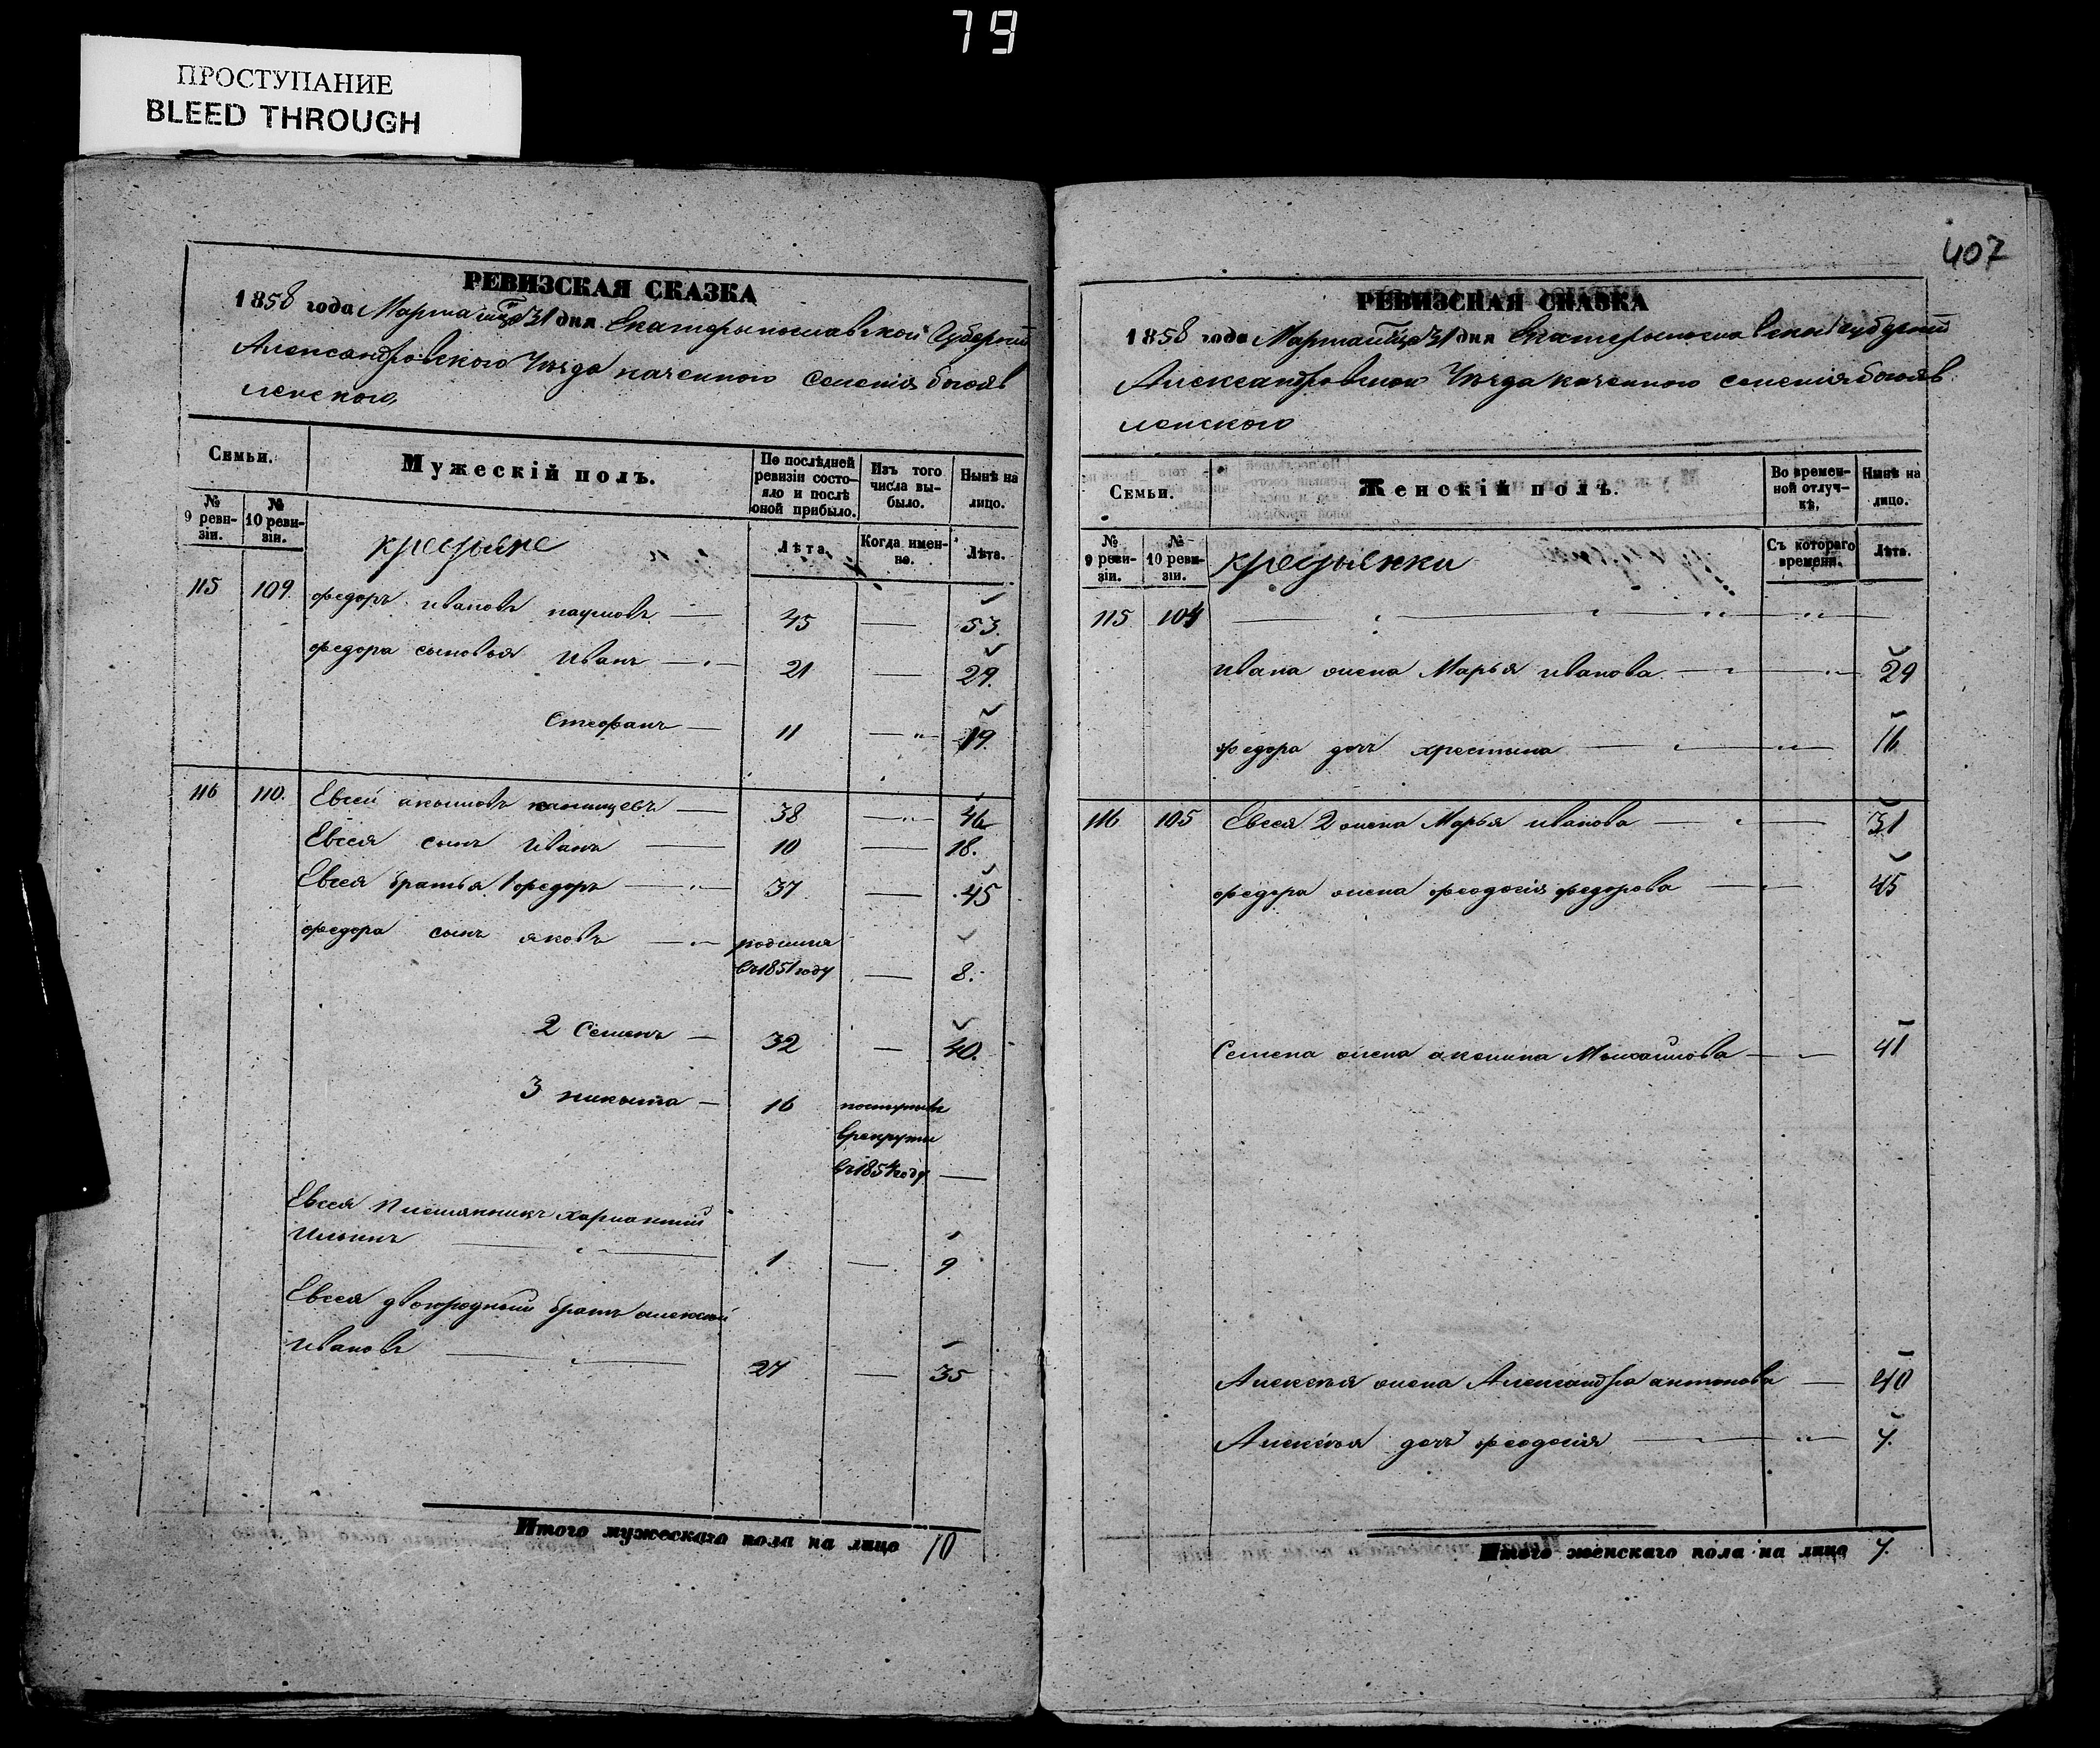 79
ПРОСТУПАНИЕ
BLEED THROUGH
РЕВИЗСКАЯ СКАЗКА
1858 года Марта 31 дня Екатеринославской Губернии
Александровского Уезда казенного селения богояв
ленского
Семьи.
Мужескій полъ.
По послѣдней ревизіи состояло и послѣ оной прибыло.
Изъ того числа выбыло.
Нынѣ на лицо.
№ 9 ревизіи.
№ 10 ревизіи.
крестьяне
Лѣта.
Когда именно.
Лѣта.
115 109. федоръ ивановъ наумовъ — 45 — 53.
федора сыновья Иванъ — 21 — 29.
Стефанъ — 11 — 19.
116 110. Евсей акимовъ — 38 — 46
Евсея сынъ Иванъ — 10 — 18.
Евсея братья 1 федоръ — 37 — 45
федора сынъ яковъ — родился
въ 1851 году — 8.
2 Семенъ — 32 — 40.
3 никыта — 16 поступивъ
врекруты
въ 1854 году —
Евсея племянникъ харлампій
Ильинъ — 1 — 9
Евсея двоюродный братъ алексей
Ивановъ — 27 — 35
Итого мужескаго пола на лицо 10
407
РЕВИЗСКАЯ СКАЗКА
1858 года Марта 31 дня Екатеринославской губернии
Александровского Уезда казенного селения богояв
ленского
Семьи.
Женскій полъ.
Во временной отлучкѣ.
Нынѣ на лицо.
№ 9 ревизіи.
№ 10 ревизіи.
крестьянки
Съ котораго времени.
Лѣта.
115 104
ивана жена Марья иванова — 29
федора дочь хрестина — 16
116 105 Евсея 2 жена Марья иванова — 31
федора жена феодосия федорова — 45
Семена жена акилина Михайлова — 41
Алексея жена Александра антонова — 40
Алексея дочь феодосия — 7.
Итого женскаго пола на лицо 7.